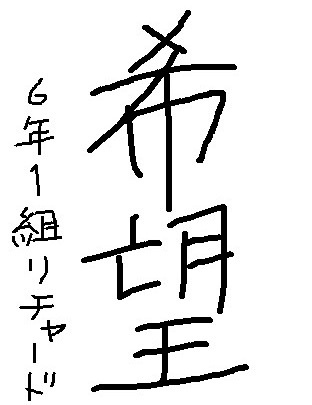 希望
6年1組リチャード